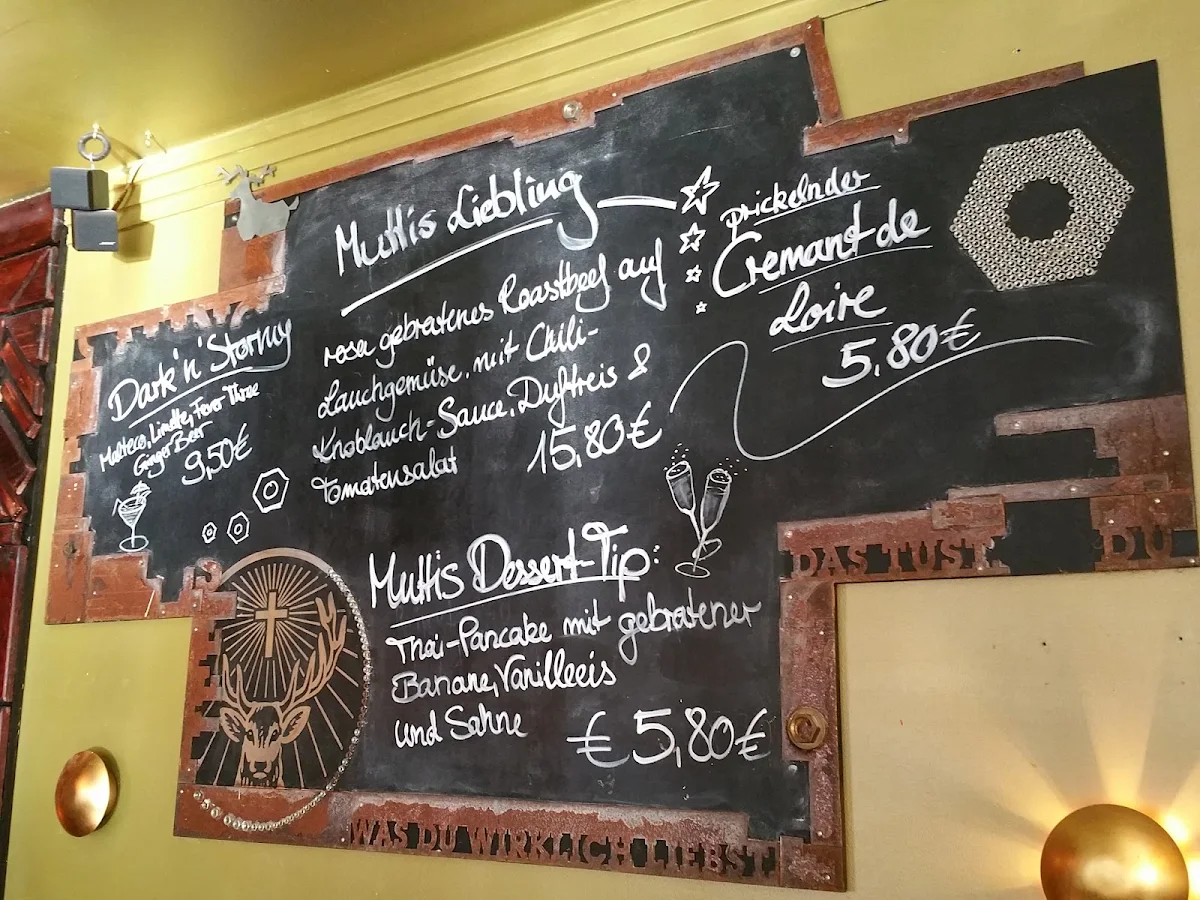 Dark'n'Stormy
Malteco, Limette, Fever Three
Ginger Beer
9,50€
Muttis Liebling
rosa gebratenes Roastbeef auf
Lauchgemüse, mit Chili-
Knoblauch-Sauce, Duftreis &
Tomatensalat
15,80€
prickelnder
Cremant de
Loire
5,80€
Muttis Dessert-Tip:
Thai-Pancake mit gebratener
Banane, Vanilleeis
und Sahne
€ 5,80€
DAS TUST DU
WAS DU WIRKLICH LIEBST